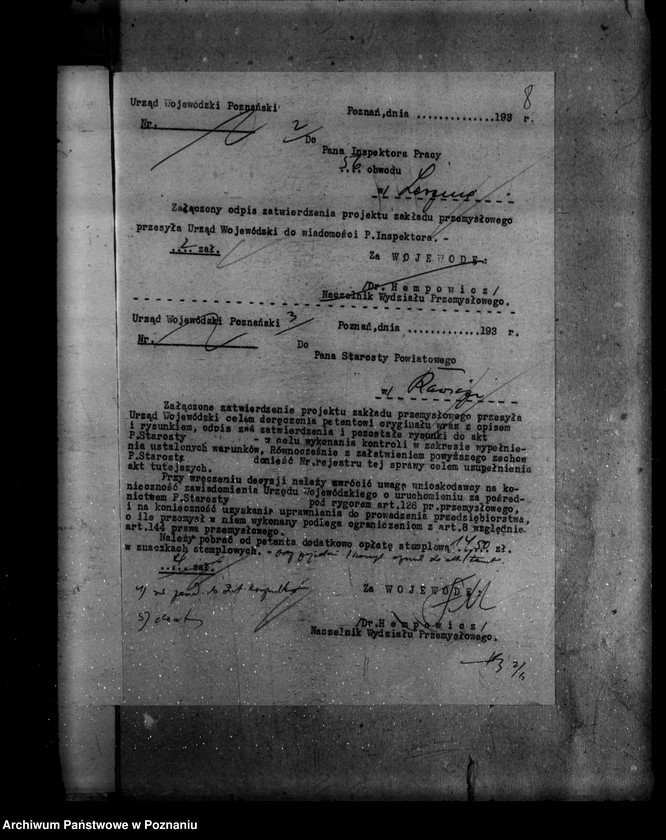 8
Urząd Wojewódzki Poznański
Poznań,dnia .............193 r.
Nr.
2
Do
Pana Inspektora Pracy
56 obwodu
w/
Załączony odpis zatwierdzenia projektu zakładu przemysłowego
przesyła Urząd Wojewódzki do wiadomości P.Inspektora. -
zał.
Za WOJEWODĘ:
/Dr. Hempowicz/
Naczelnik Wydziału Przemysłowego.
Urząd Wojewódzki Poznański
3
Poznań,dnia .............193 r.
Nr.
Do
Pana Starosty Powiatowego
w/
Załączone zatwierdzenie projektu zakładu przemysłowego przesyła
Urząd Wojewódzki celem doręczenia petentowi oryginału wraz z opisem
i rysunkiem, odpis zaś zatwierdzenia i pozostałe rysunki do akt
P.Starosty - w celu wykonania kontroli w zakresie wypełnie-
nia ustalonych warunków, Równocześnie z załatwieniem powyższego zechce
P.Starosta donieść Nr.rejestru tej sprawy celem uzupełnienia
akt tutejszych.
Przy wręczeniu decyzji należy zwrócić uwagę wnioskodawcy na ko-
nieczność zawiadomienia Urzędu Wojewódzkiego o uruchomieniu za pośred-
nictwem P.Starosty pod rygorem art.126 pr.przemysłowego,
i na konieczność uzyskania uprawnienia do prowadzenia przedsiębiorstwa,
o ile przemysł w niem wykonany podlega ograniczeniom z art.8 względnie
art.144 prawa przemysłowego.
Należy pobrać od petenta dodatkowo opłatę stemplową 14,50 zł.
w znaczkach stemplowych. -
zał.
Za WOJEWODĘ:
4)
5)
/Dr.Hempowicz/
Naczelnik Wydziału Przemysłowego.
Archiwum Państwowe w Poznaniu